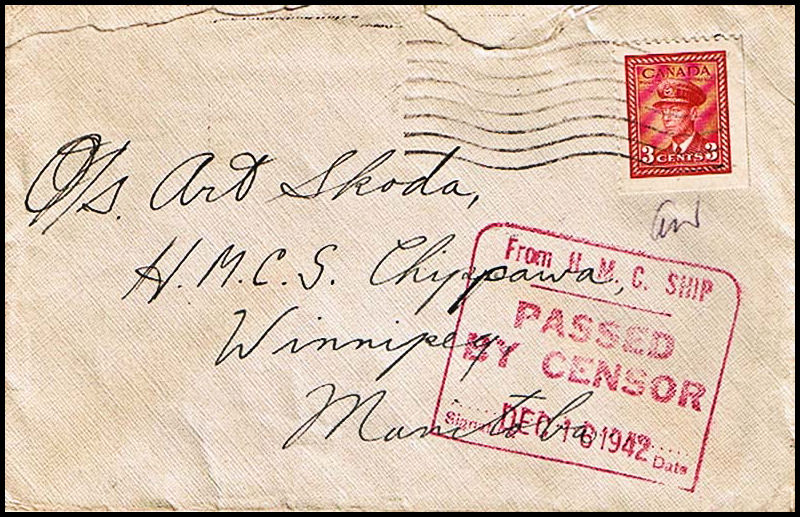 CANADA
3 CENTS 3
O/S. Art Skoda,
H.M.C.S. Chippawa,
Winnipeg,
Manitoba
From H. M. C. SHIP
PASSED
BY CENSOR
Signed DEC 16 1942 Date